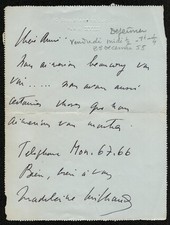 Déjeuner
Vendredi midi ½
23 décembre 55
Cher Ami
Nous aimerions beaucoup vous
voir..... nous avons aussi
certaines choses que nous
aimerions vous montrer
Téléphone Mon. 67.66
Bien, bien à vous
Madeleine Milhaud